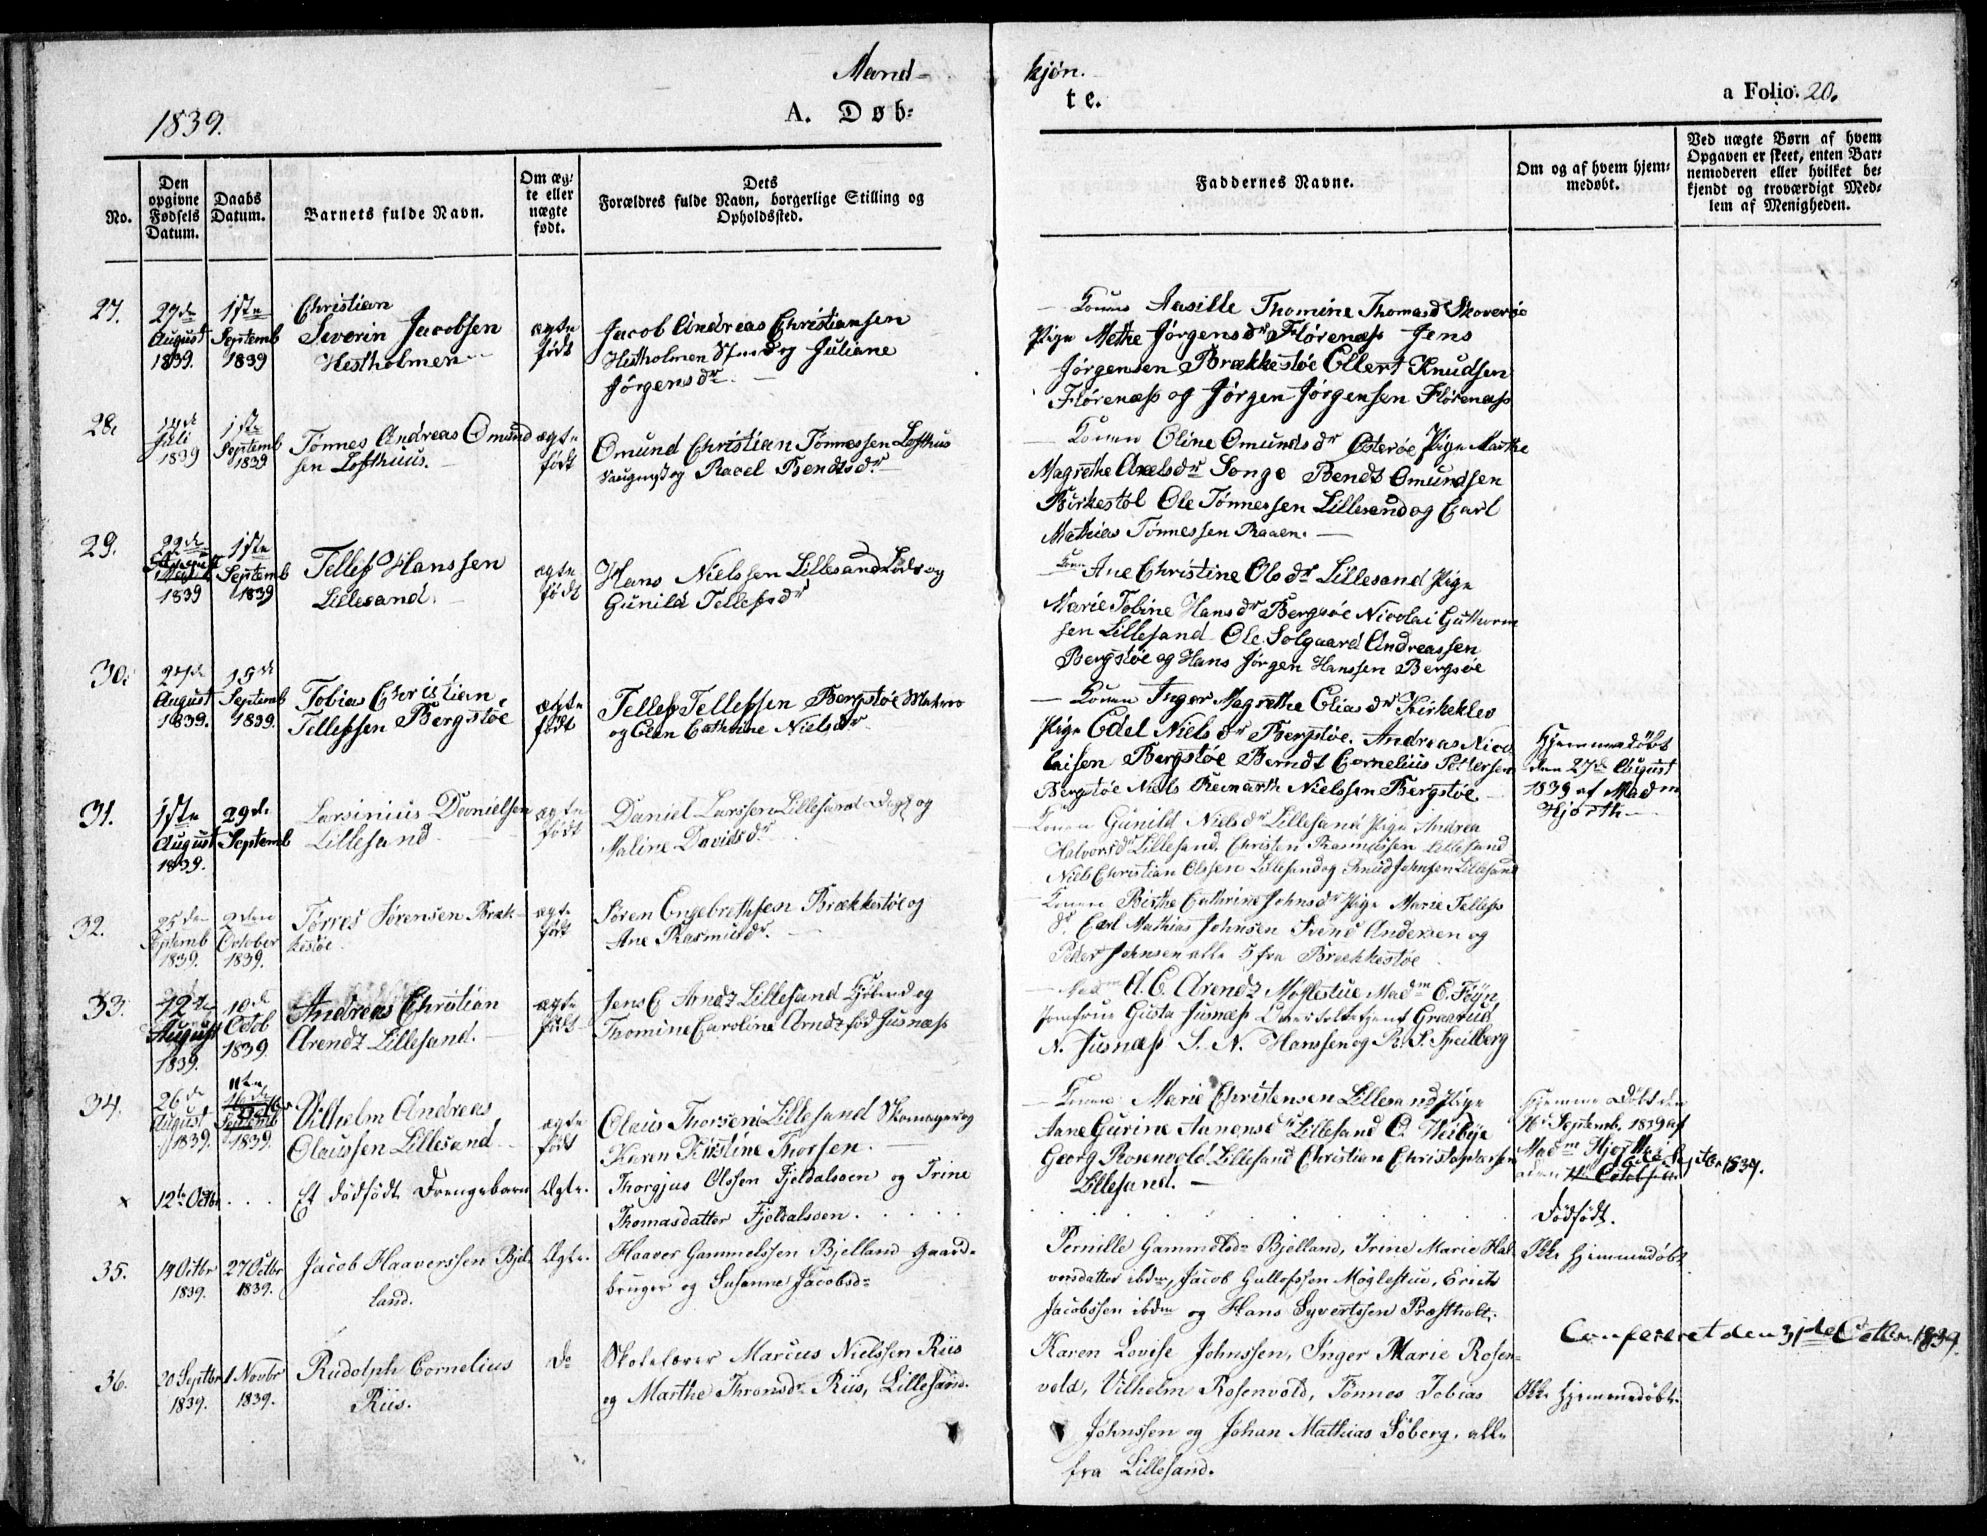 Mand-
kjøn.
1839.
A. Døb-
te.
a Folio. 20.
No.
Den opgivne Fødsels Datum.
Daabs Datum.
Barnets fulde Navn.
Om ægte eller uægte født.
Dets
Forældres fulde Navn, borgerlige Stilling og
Opholdssted.
Faddernes Navne.
Om og af hvem hjem-
medøbt.
Ved uægte Børn af hvem
Opgaven er skeet, enten Bar-
nemoderen eller hvilket be-
kjendt og troværdigt Med-
lem af Menigheden.
27.
27de August 1839.
1ste Septemb 1839
Christian
Severin Jacobsen
Hestholmen
ægte født
Jacob Andreas Christiansen
Hestholmen og Juliane
Jørgensdr.
Konen Aasille Thomine Thomasd Skoverøe
Pige Methe Jørgensdr Flørenæss Jens
Jørgensen Brækkestøe Ellert Knudsen
Flørenæss og Jørgen Jørgensen Flørenæss
28.
Juli 1839
1ste Septemb 1839
Tønnes Andreas Omund-
sen Lofthuus.
ægte født
Omund Christian Tønnessen Lofthus
og Racel Bendtsdr
Konen Oline Omundsdr Østerøe Pige Marthe
Magrethe Axelsdr Songe Bendt Omundsen
Birkestøl Ole Tønnessen Lillesand og Carl
Mathias Tønnessen Raaen.
29.
22de 1839
1ste Septemb 1839
Tellef Hanssen
Lillesand.
ægte født
Hans Nielssen Lillesand Lods og
Gunild Tellefsdr
Kone Ane Christine Olsdr Lillesand Pige
Marie Tobine Hansdr Bergsøe Nicolai Guthorm
sen Lillesand Ole Solgaard Andreassen
Bergstøe og Hans Jørgen Hanssen Bergsøe
30.
27de August 1839.
15de Septemb 1839.
Tobias Christian
Tellefsen Bergstøe
ægte født
Tellef Tellefsen Bergstøe Matros
og Elen Cathrine Nielsdr
Konen Inger Magrethe Eliasdr Kirkeklev
Pige Edel Nielsdr Bergstøe. Andreas Nico
laisen Bergstøe Berndt Cornelius Pettersen
Bergstøe Niels Reinarth Nielssen Bergstøe.
Hjemmedøbt
den 27de August
1839 af Madm
Hjorth
31.
1ste August 1839.
29de Septemb
Larsinius Danielsen
Lillesand
ægte født
Daniel Larssen Lillesand og
Maline Davidsdr
Konen Gunild Nielsdr Lillesand Pige Andrea
Halvorsdr Lillesand Christen Rasmussen Lillesand
Niels Christian Olssen Lillesand og Knud Johnsen Lillesand
32.
25den Septemb 1839.
2den October 1839.
Tørres Sørensen Bræk-
kesøe.
ægte født
Søren Engebrethsen Brækkestøe og
Ane Rasmusdr.
Konen Birthe Cathrine Johnsdr Pige Marie Tellefs
dr. Carl Mathias Johnsen Svend Andersen og
Peder Johnsen alle 5 fra Brækkestøe
33.
12te August 1839.
10de Octob 1839.
Andreas Christian
Arendz Lillesand.
ægte født
Jens C Arndz Lillesand og
Thomine Caroline Arndz fød Jusnæss
Madm A. C. Arendz Møglestue Madm C. Føyn
Jomfrue Gusta Jusnæss Graarud
N. Jusnæss S. N. Hanssen og R. S. Speilberg
34.
26de August 1839.
11te Septemb 1839.
Vilhelm Andreas
Olaussen Lillesand
ægte født
Olaus Thorsen Lillesand Skomager og
Karen Kirstine Thorsen.
Konen Marie Christensen Lillesand Pige
Aane Gurine Aanensdr Lillesand C. Heibøe
Georg Rosenvold Lillesand Christian Christophersen
Lillesand.
Hjemme Døbt den
16 Septemb. 1839 af
Madm Hjorth
1839.
x
12te Octbr
. . .
Et dødfødt Drengebarn
Ægte.
Thorgjus Olssen Fjeldalsoen og Trine
Thomasdatter Fjeldalsoen.
Dødfødt.
35.
19 Octbr 1839.
27 Octbr 1839.
Jacob Haaverssen Bjel-
land.
Ægte.
Haaver Gammelssen Bjelland Gaard-
bruger og Susanne Jacobsdr
Pernille Gammelsdr Bjelland, Trine Marie Hal-
vorsdatter ibdm, Jacob Gullofssen Møglestue, Erich
Jacobssen ibdm og Hans Syvertssen Præstholt.
Ikke hjemmedøbt
Confereret den 31te Octbr. 1839.
36.
20 Septbr 1839.
1 Novbr 1839.
Rudolph Cornelius
Riis.
Do
Skolelærer Marcus Nielssen Riis
og Marthe Thronsdr Riis, Lillesand.
Karen Lovise Johnssen, Inger Marie Rosen-
vold, Vilhelm Rosenvold, Tønnes Tobias
Johnssen og Johan Mathias Søberg, alle
fra Lillesand.
Ikke hjemmedøbt.